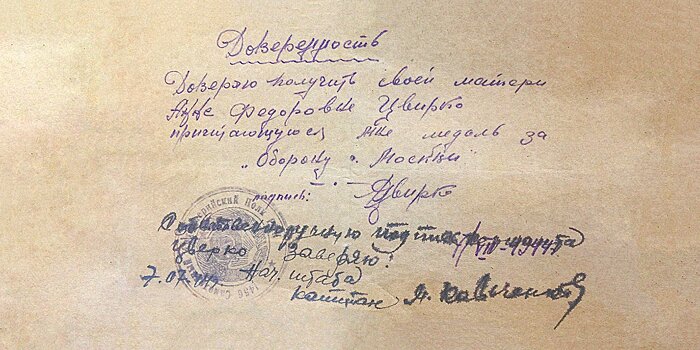 Доверенность
Доверяю получить своей матери
Анне Федоровне Цвирко
причитающуюся мне медаль за
„Оборону г. Москвы"
подпись: Цвирко
Собственноручную подпись
Цвирко заверяю:
7.07.44г. Нач. штаба
капитан